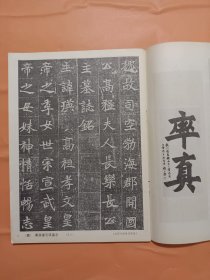 魏故司空勃海郡開國
公高猛夫人長樂長公
主墓誌銘
主諱瑛高祖孝文皇
帝之季女世宗宣武皇
帝之母妹神情恬暢志
率真